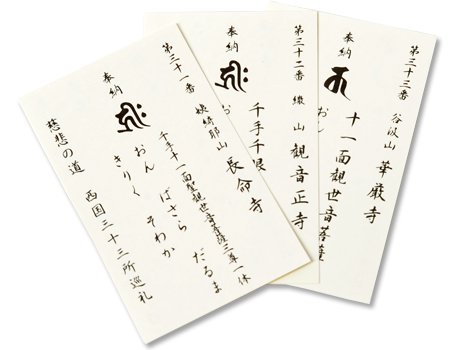 第三十一番 姨綺耶山 長命寺
奉納
千手十一面聖観世音菩薩三尊一体
おん ばさら だるま
きりく そわか
慈悲の道 西国三十三所巡礼
第三十二番 繖山 観音正寺
奉納
千手千眼
おん
第三十三番 谷汲山 華厳寺
奉納
十一面観世音菩薩
おん